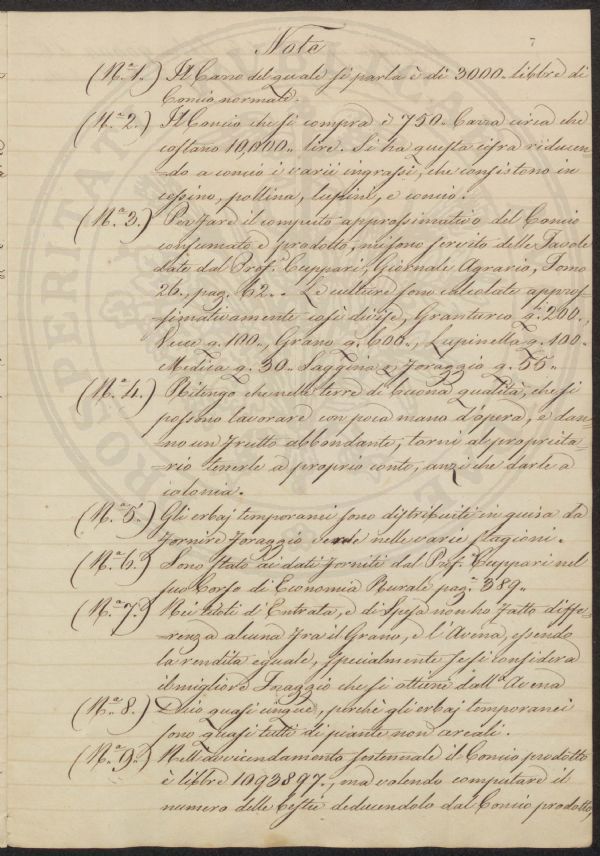 Note
7
(N.ª 1.) Il Carro del quale si parla è di 3000. libbre di
Concio normale.
(N.ª 2.) Il Concio che si compra è 750. Carra circa che
costano 10,000 lire. Si ha questa cifra riducen=
=do a concio i varii ingrassi, che consistono in
cessino, pollina, lupini, e concio.
(N.ª 3.) Per fare il computo approssimativo del Concio
consumato e prodotto, mi sono servito delle Tavole
date dal Prof.e Cuppari, Giornale Agrario, Tomo
26., pag. 62.. Le culture sono calcolate appros=
=simativamente così divise, Granturco q.i 200.,
Vecce q. 100., Grano q. 600., Lupinella q. 100.
Medica q. 30.. Saggina e foraggio q. 55..
(N.ª 4.) Ritengo che nelle terre di buona qualità, che si
possono lavorare con poca mano d'opera, e dan=
=no un frutto abbondante, torni al proprieta=
=rio tenerle a proprio conto, anzi che darle a
colonia.
(N.ª 5.) Gli erbaj temporanei sono distribuiti in guisa da
fornire foraggio verde nelle varie stagioni.
(N.ª 6.) Sono stato ai dati forniti dal Prof.e Cuppari nel
suo Corso di Economia Rurale pag.e 389..
(N.ª 7.) Nei titoli d'Entrata, e di spesa non ho fatto diffe=
=renza alcuna fra il Grano, e l'Avena, essendo
la rendita eguale, specialmente se si considera
il migliore che si ottiene dall'Avena
(N.ª 8.) Dico quasi cinque, perchè gli erbaj temporanei
sono quasi tutti di piante non cereali.
(N.ª 9.) Nell'avvicendamento settennale il Concio prodotto
è libbre 1093897., ma volendo computare il
numero delle bestie deducendolo dal Concio prodotto,